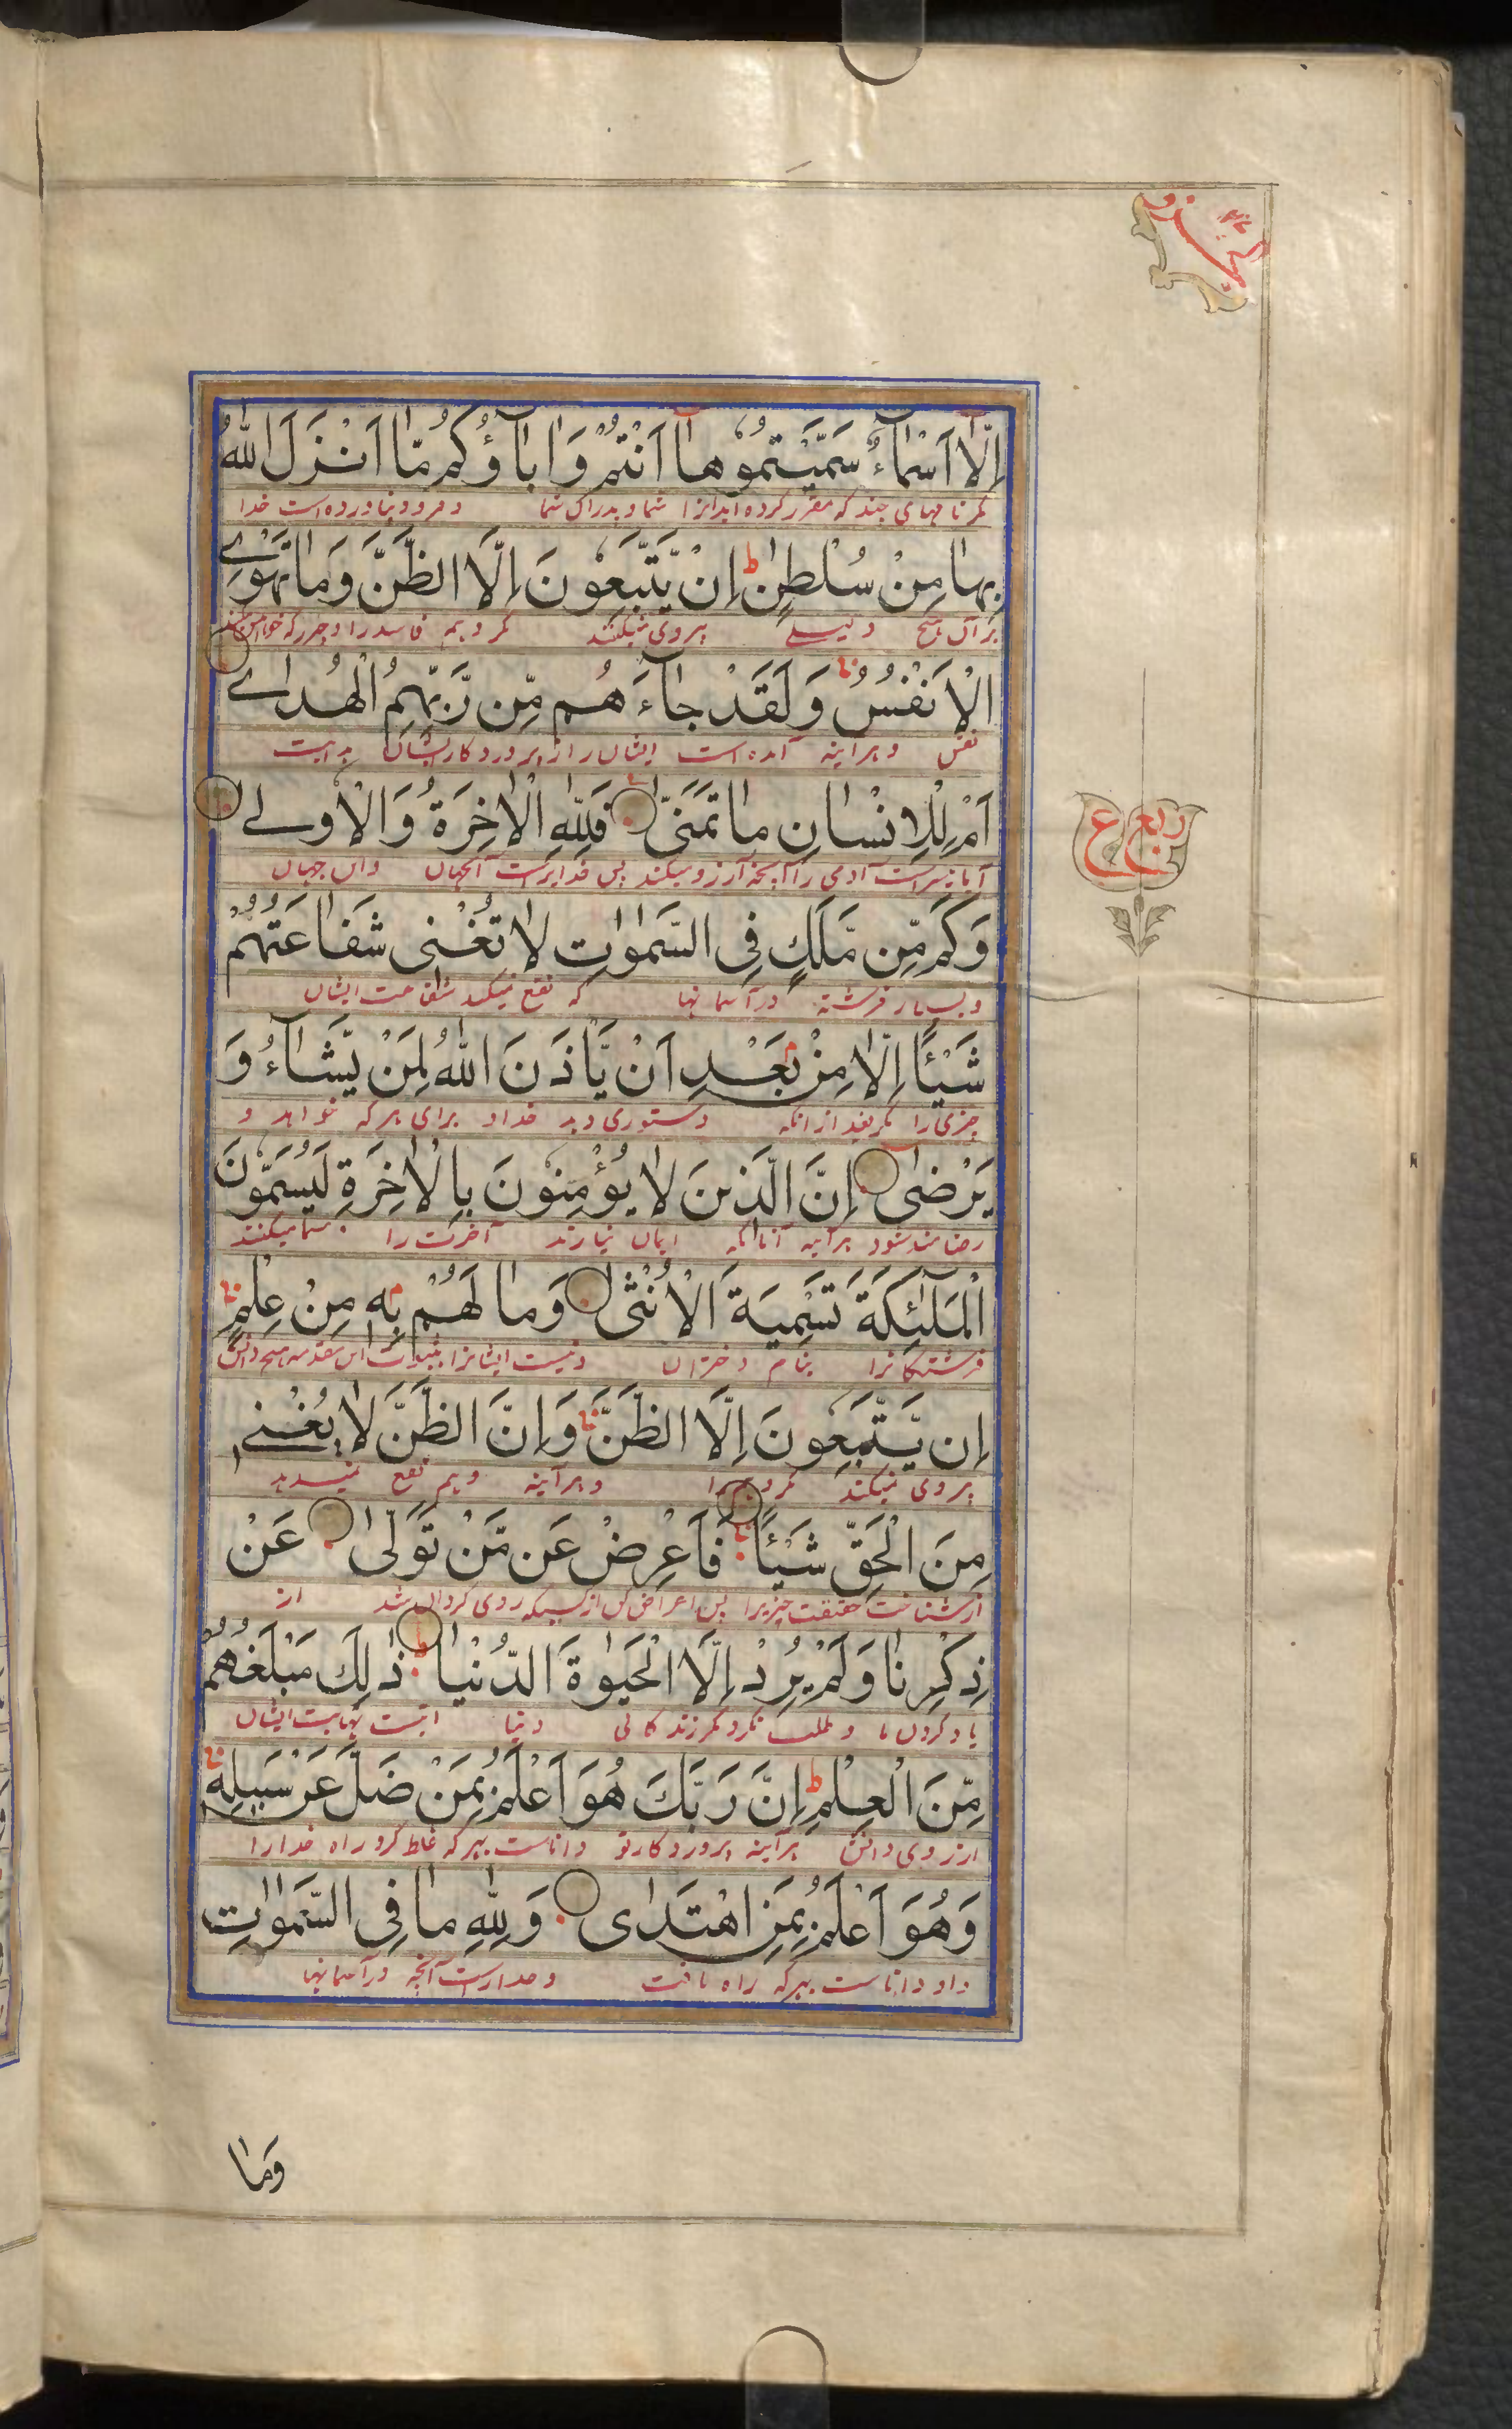 اِلَّا اَسْمَاءٌ سَمَّيْتُمُوهَا اَنْتُمْ وَاٰبَاؤُكُمْ مَّا اَنْزَلَ اللّٰهُ
مگر نامهای چند که مقرر کرده اید انرا شما و پدران شما و فرود نیاورده است خدا
بِهَا مِنْ سُلْطٰنٍ ط اِنْ يَّتَّبِعُونَ اِلَّا الظَّنَّ وَمَا تَهْوَے
بر آن هیچ دلیلے پیروی نمیکنند مگر وهم فاسد را و چیزیکه خواهش میکند
الْاَنْفُسُ وَلَقَدْ جَاءَهُم مِّن رَّبِّهِمُ الْهُدٰے
نفس و هر آینه آمده است ایشان را از پروردگار ایشان هدایت
اَمْ لِلْاِنْسَانِ مَا تَمَنّٰى فَلِلّٰهِ الْاٰخِرَةُ وَالْاُولےٰ
آیا میسر است آدمی را آنچه آرزو میکند پس خدایراست آنجهان و این جهان
وَكَم مِّن مَّلَكٍ فِي السَّمٰوٰتِ لَا تُغْنِى شَفَاعَتُهُمْ
و بسیار فرشته در آسمانها که نفع نمیکند شفاعت ایشان
شَيْـًٔا اِلَّا مِنْ بَعْدِ اَنْ يَّاْذَنَ اللّٰهُ لِمَنْ يَّشَاءُ وَ
چیزی را مگر بعد از انکه دستوری دهد خداد برای هر که خواهد و
يَرْضٰى اِنَّ الَّذِينَ لَا يُؤْمِنُونَ بِالْاٰخِرَةِ لَيُسَمُّونَ
رضامند شود هر آینه آنانکه ایمان نیارند آخرت را مسما میکنند
الْمَلٰئِكَةَ تَسْمِيَةَ الْاُنْثٰى وَمَا لَهُمْ بِهٖ مِنْ عِلْمٍ
فرشتگانرا بنام دختران و نیست ایشانرا این مقدمه هیچ دانش
اِن يَّتَّبِعُونَ اِلَّا الظَّنَّ وَاِنَّ الظَّنَّ لَا يُغْنِى
پیروی نمیکنند مگر وهم را و هر آینه وهم نفع نمیدهد
مِنَ الْحَقِّ شَيْـًٔا فَاَعْرِضْ عَن مَّنْ تَوَلّٰى عَنْ
از شناخت حقیقت چیزیرا پس اعراض کن از کسیکه روی گردان شد از
ذِكْرِنَا وَلَمْ يُرِدْ اِلَّا الْحَيٰوةَ الدُّنْيَا ط ذٰلِكَ مَبْلَغُهُمْ
یاد کردن ما و طلب نکرد مگر زندگانی دنیا اینست نهایت ایشان
مِّنَ الْعِلْمِ ط اِنَّ رَبَّكَ هُوَ اَعْلَمُ بِمَنْ ضَلَّ عَنْ سَبِيلِهٖ
از روی دانش هر آینه پروردگار تو داناست بهر که غلط کرد راه خدا را
وَهُوَ اَعْلَمُ بِمَنِ اهْتَدٰى وَلِلّٰهِ مَا فِي السَّمٰوٰتِ
و او داناست بهرکه راه یافت و خدا راست آنچه در آسمانها
ربع ع
وَمَا